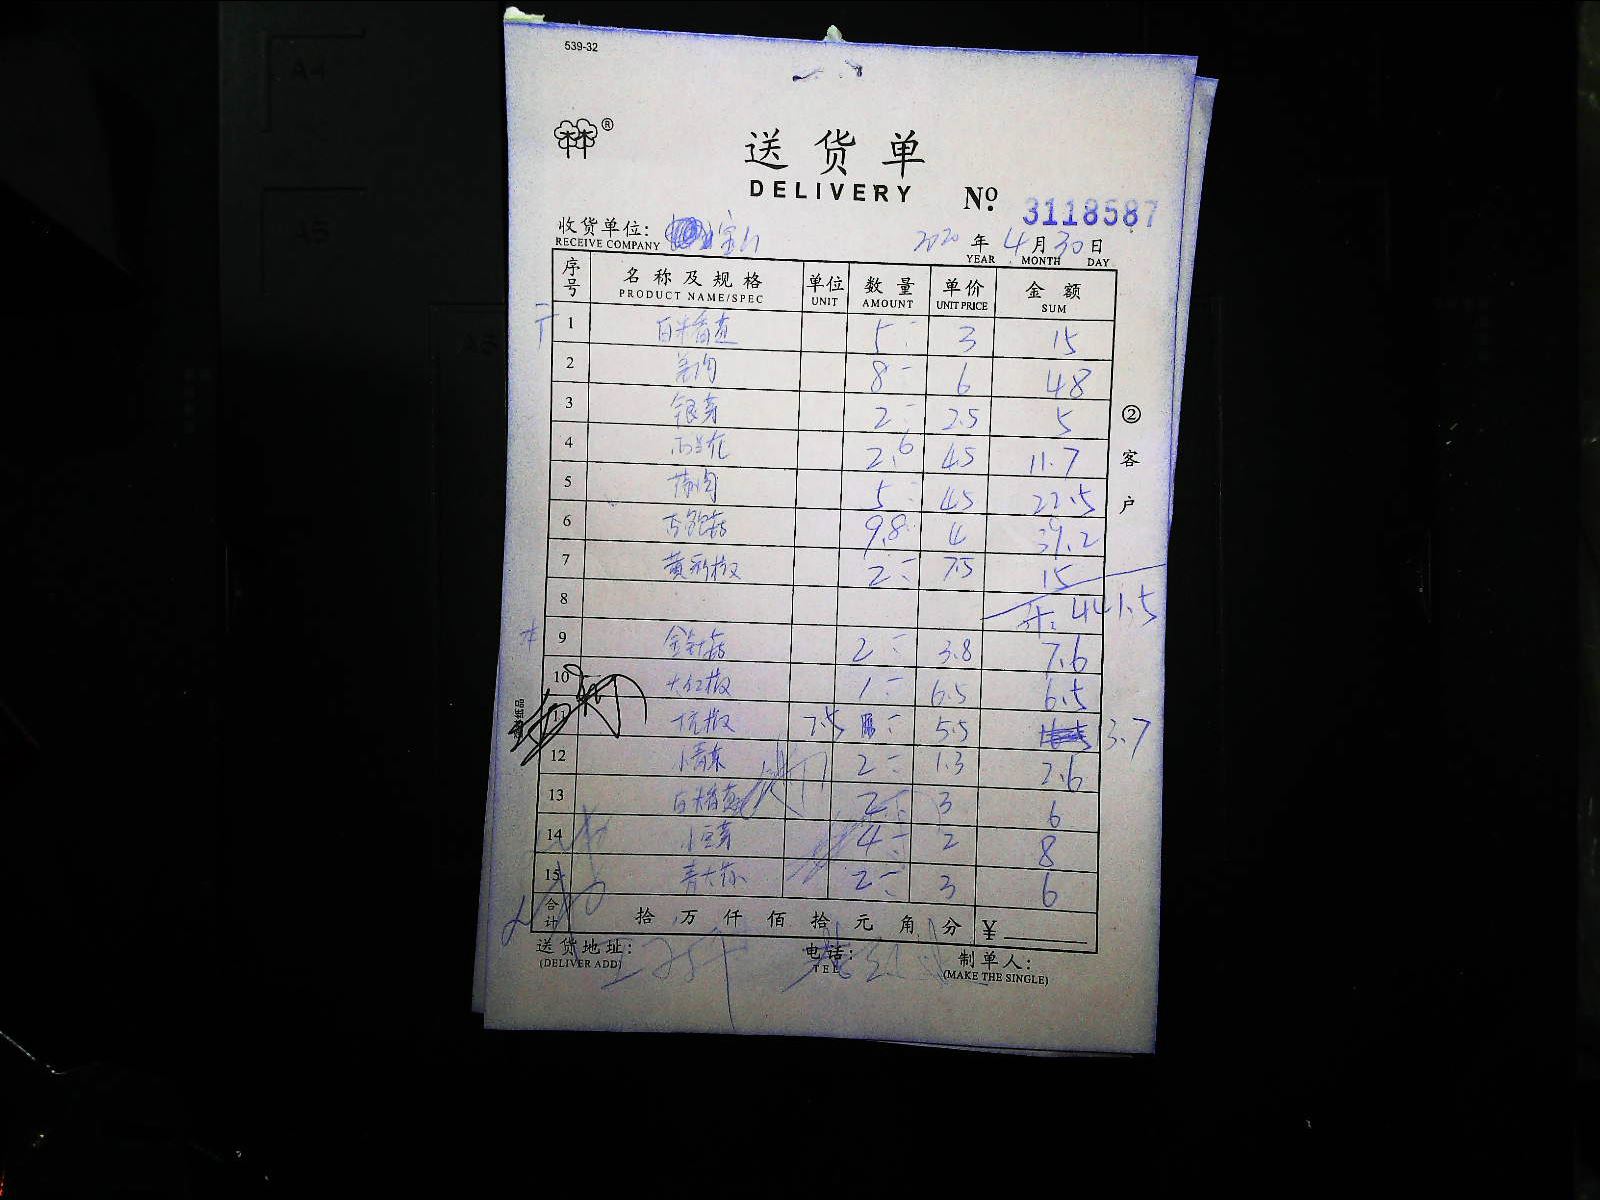 539-32
林®
送货单
DELIVERY
Nº 3118587
收货单位： 宝山 2020年4月30日
RECEIVE COMPANY YEAR MONTH DAY
序号 名称及规格 单位 数量 单价 金额
PRODUCT NAME/SPEC UNIT AMOUNT UNIT PRICE SUM
1 白米苋 5 3 15
2 8 6 48
3 银芽 2 2.5 5
4 西兰花 2.6 4.5 11.7
5 5 4.5 22.5
6 杏鲍菇 9.8 4 39.2
7 黄彩椒 2 7.5 15
8 441.5
9 金针菇 2 3.8 7.6
10 大红椒 1 6.5 6.5
11 杭椒 7.5 5.5 3.7
12 小青菜 2 1.3 2.6
13 2 3 6
14 小豆芽 4 2 8
15 青大蒜 2 3 6
合计 拾 万 仟 佰 拾 元 角 分 ¥
送货地址： 电话： 制单人：
(DELIVER ADD) TEL (MAKE THE SINGLE)
②客户